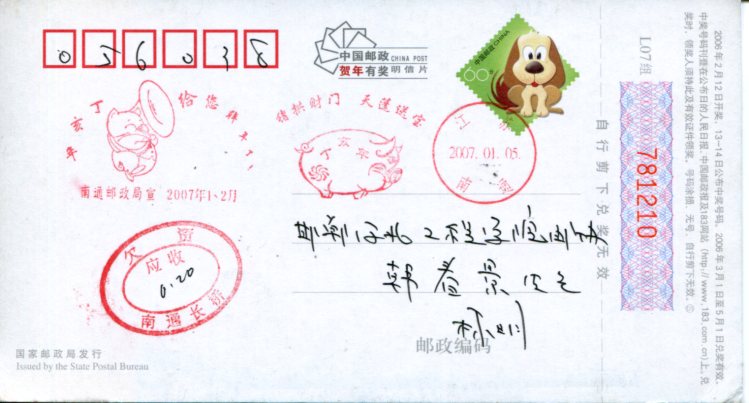 056038
中国邮政 CHINA POST
贺年有奖 明信片
中国邮政 CHINA
60分
丁亥年 给您拜年了!
南通邮政局宣 2007年1-2月
猪拱财门 天蓬送宝
丁亥年
江苏
2007.01.05.
南通
欠资
应收
0.20
南通长桥
邯郸河北工程学院
韩
景
邮政编码
国家邮政局发行
Issued by the State Postal Bureau
自行剪下兑奖无效
L07组
781210
2006年2月12日开奖,13-14日公布中奖号码。2006年3月1日至5月1日兑奖有效。
中奖号码刊登在公布日的人民日报、中国邮政报及183网站(http://www.183.com.cn)上。兑
奖时,领奖人须持此及有效证件领奖,号码涂损无号,自行剪下无效。